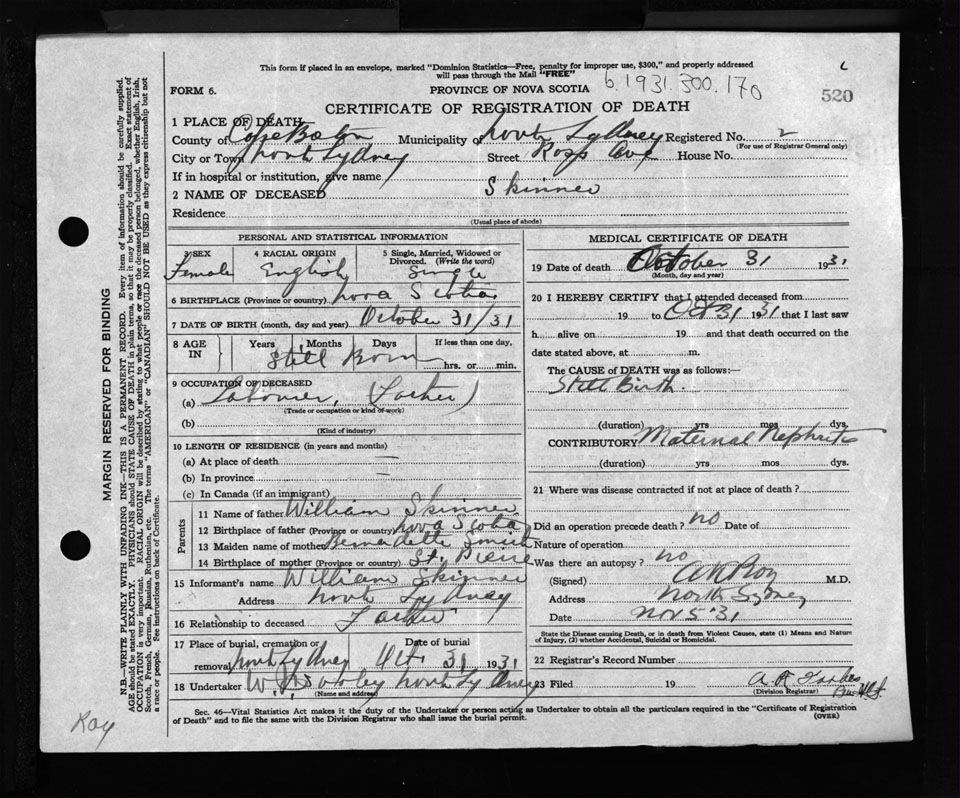 This form if placed in an envelope, marked "Dominion Statistics—Free, penalty for improper use, $300," and properly addressed
will pass through the Mail "FREE"
FORM 6.
PROVINCE OF NOVA SCOTIA
6.1931.300.170
520
CERTIFICATE OF REGISTRATION OF DEATH
1 PLACE OF DEATH
County of Cape Breton Municipality of North Sydney Registered No. 2
(For use of Registrar General only)
City or Town North Sydney Street Ross Ave House No.
If in hospital or institution, give name
2 NAME OF DECEASED Skinner
Residence
(Usual place of abode)
PERSONAL AND STATISTICAL INFORMATION
3 SEX 4 RACIAL ORIGIN 5 Single, Married, Widowed or
Divorced. (Write the word)
Female English Single
6 BIRTHPLACE (Province or country) Nova Scotia
7 DATE OF BIRTH (month, day and year) October 31/31
8 AGE IN Years Months Days If less than one day,
Still Born hrs. or min.
9 OCCUPATION OF DECEASED
(a) Labourer, (Father)
(Trade or occupation or kind of work)
(b)
(Kind of industry)
10 LENGTH OF RESIDENCE (in years and months)
(a) At place of death —
(b) In province —
(c) In Canada (if an immigrant)
Parents
11 Name of father William Skinner
12 Birthplace of father (Province or country) Nova Scotia
13 Maiden name of mother Bernadette Smith
14 Birthplace of mother (Province or country) St. Pierre
15 Informant's name William Skinner
Address North Sydney
16 Relationship to deceased Father
17 Place of burial, cremation or removal North Sydney Date of burial Oct 31 1931
18 Undertaker North Sydney
(Name and address)
MEDICAL CERTIFICATE OF DEATH
19 Date of death October 31 1931
(Month, day and year)
20 I HEREBY CERTIFY that I attended deceased from
19 to Oct 31 1931 that I last saw
h alive on 19 and that death occurred on the
date stated above, at m.
The CAUSE OF DEATH was as follows:—
Still Birth.
(duration) yrs mos dys.
CONTRIBUTORY Maternal Nephritis
(duration) yrs mos dys.
21 Where was disease contracted if not at place of death?
Did an operation precede death? no Date of
Nature of operation
Was there an autopsy? no
(Signed) M.D.
Address North Sydney
Date Nov 5 '31
State the Disease causing Death, or in death from Violent Causes, state (1) Means and Nature
of Injury, (2) whether Accidental, Suicidal or Homicidal.
22 Registrar's Record Number
23 Filed 19
(Division Registrar)
Sec. 46—Vital Statistics Act makes it the duty of the Undertaker or person acting as Undertaker to obtain all the particulars required in the "Certificate of Registration
of Death" and to file the same with the Division Registrar who shall issue the burial permit.
(OVER)
MARGIN RESERVED FOR BINDING
N.B.—WRITE PLAINLY WITH UNFADING INK—THIS IS A PERMANENT RECORD. Every item of information should be carefully supplied.
AGE should be stated EXACTLY. PHYSICIANS should STATE CAUSE OF DEATH in plain terms, so that it may be properly classified. Exact statement of
OCCUPATION is very important. RACIAL ORIGIN will be described by stating to what people or race the deceased person belonged, whether English, Irish,
Scotch, French, German, Russian, Ruthenian, etc. The terms "AMERICAN" or "CANADIAN" SHOULD NOT BE USED as they express citizenship but not
a race or people. See instructions on back of Certificate.